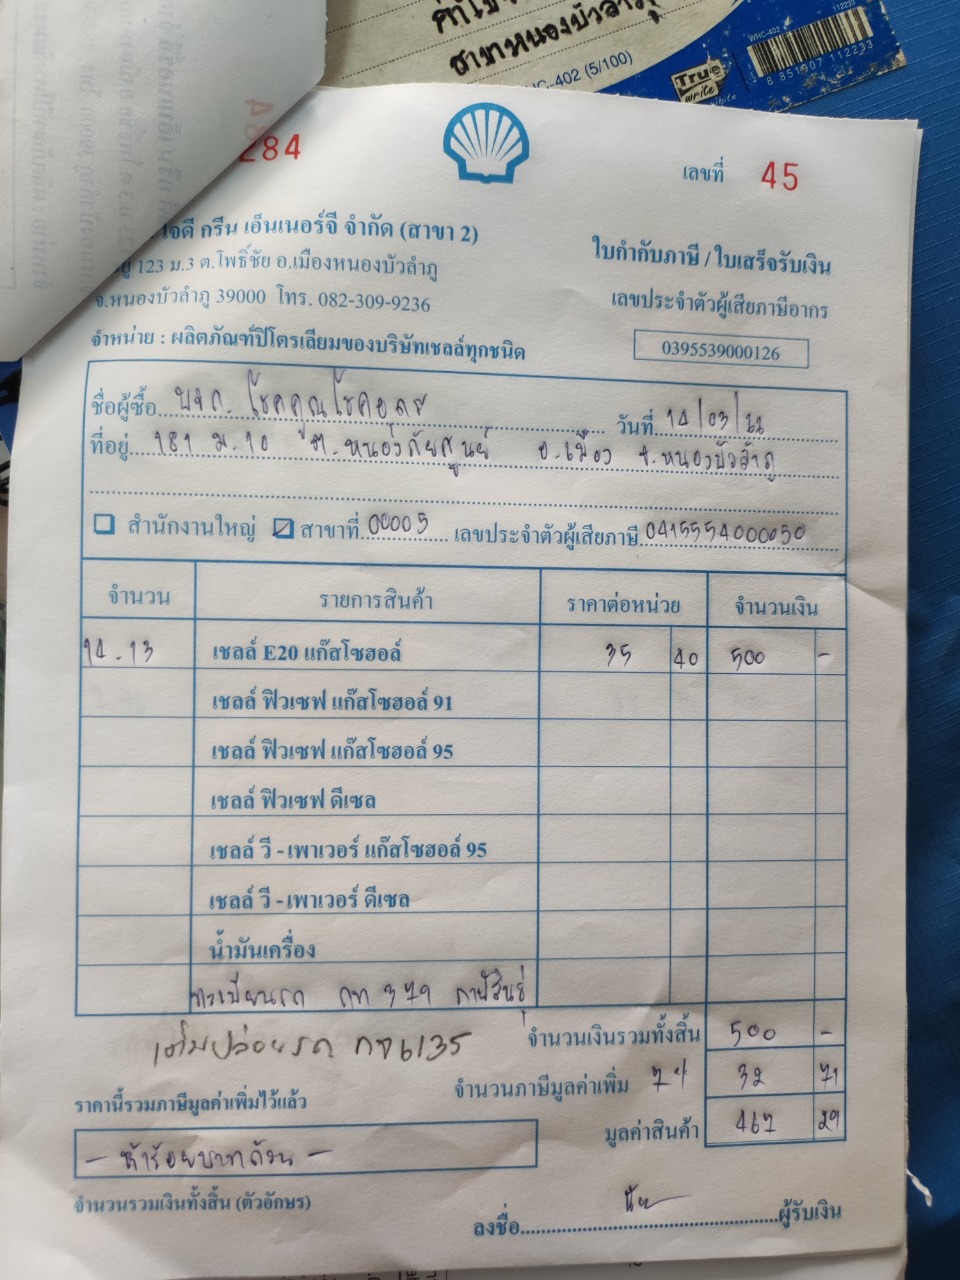 สาขาหนองบัวลำภู
-402 (5/100)
True
write
WHC-402
112233
8 851907 112233
284
เลขที่ 45
เจดี กรีน เอ็นเนอร์จี จำกัด (สาขา 2)
ใบกำกับภาษี / ใบเสร็จรับเงิน
123 ม.3 ต.โพธิ์ชัย อ.เมืองหนองบัวลำภู
เลขประจำตัวผู้เสียภาษีอากร
จ.หนองบัวลำภู 39000 โทร. 082-309-9236
0395539000126
จำหน่าย : ผลิตภัณฑ์ปิโตรเลียมของบริษัทเชลล์ทุกชนิด
ชื่อผู้ซื้อ หจก. โชคคูณโชคอุดร วันที่ 14/03/22
ที่อยู่ 181 ม.10 ต.หนองภัยศูนย์ อ.เมือง จ.หนองบัวลำภู
สำนักงานใหญ่ สาขาที่ 00005 เลขประจำตัวผู้เสียภาษี 0415554000050
จำนวน รายการสินค้า ราคาต่อหน่วย จำนวนเงิน
14.13 เชลล์ E20 แก๊สโซฮอล์ 35 40 500 -
เชลล์ ฟิวเซฟ แก๊สโซฮอล์ 91
เชลล์ ฟิวเซฟ แก๊สโซฮอล์ 95
เชลล์ ฟิวเซฟ ดีเซล
เชลล์ วี - เพาเวอร์ แก๊สโซฮอล์ 95
เชลล์ วี - เพาเวอร์ ดีเซล
น้ำมันเครื่อง
ทะเบียนรถ กท 379 กาฬสินธุ์
จำนวนเงินรวมทั้งสิ้น 500 -
ปล่อยรถ กจ 6135
จำนวนภาษีมูลค่าเพิ่ม 7% 32 71
ราคานี้รวมภาษีมูลค่าเพิ่มไว้แล้ว
มูลค่าสินค้า 467 29
- ห้าร้อยบาทถ้วน -
จำนวนรวมเงินทั้งสิ้น (ตัวอักษร)
ลงชื่อ ผู้รับเงิน